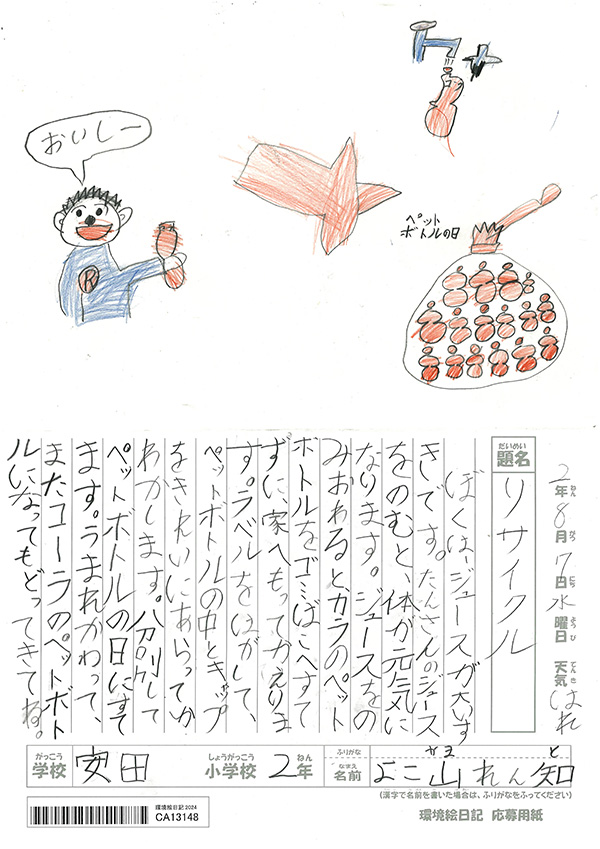 おいしー
R
ペット
ボトルの日
2年8月7日水曜日 天気 はれ
ねん がつ にち ようび てんき
だいめい
題名 リサイクル
ぼくは、ジュースが大すきです。たんさんのジュース
をのむと、体が元気に
なります。ジュースをの
みおわるとカラのペット
ボトルをゴミばこへすて
ずに、家へもってかえりま
す。ラベルをはがして、
ペットボトルの中とキャップ
をきれいにあらってか
わかします。分べつして
ペットボトルの日にすて
ます。うまれかわって、
またコーラのペットボト
ルになってもどってきてね。
がっこう しょうがっこう ねん ふりがな やま と
学校 安田 小学校 2年 なまえ 名前 よこ山れん知
(漢字で名前を書いた場合は、ふりがなをふってください)
環境絵日記2024
CA13148
環境絵日記 応募用紙